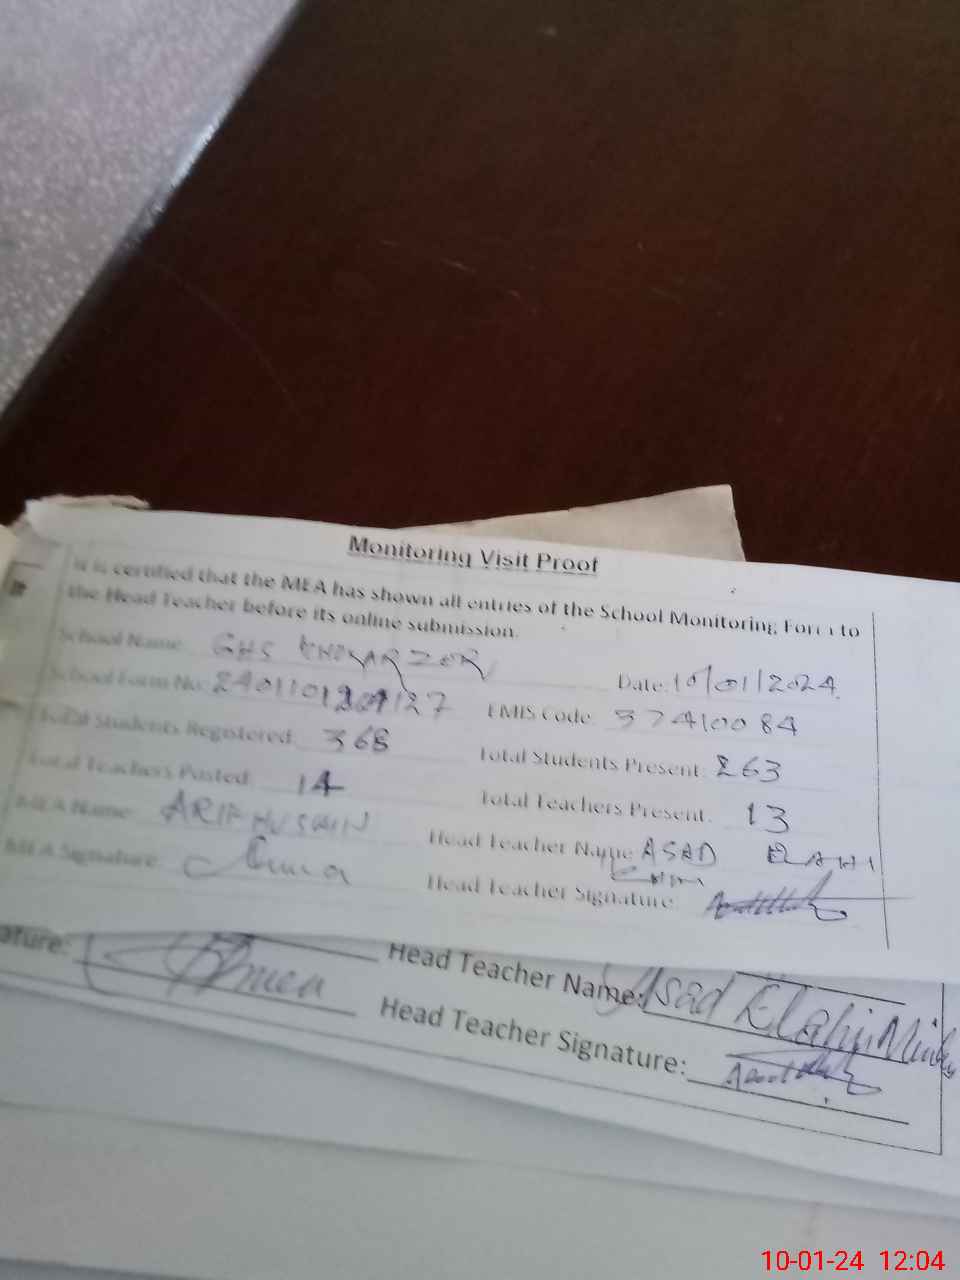 Monitoring Visit Proof
It is certified that the MEA has shown all entries of the School Monitoring Form to
the Head Teacher before its online submission.
School Name: GHS
Date: 10/01/2024
School Form No:
EMIS Code: 37410084
Total Students Registered: 368
Total Students Present: 263
Total Teachers Posted: 14
Total Teachers Present: 13
MEA Name: ARIF HUSSAIN
Head Teacher Name: ASAD ELAHI
MEA Signature:
Head Teacher Signature:
ature:
Head Teacher Name: Asad Elahi
Head Teacher Signature:
10-01-24 12:04